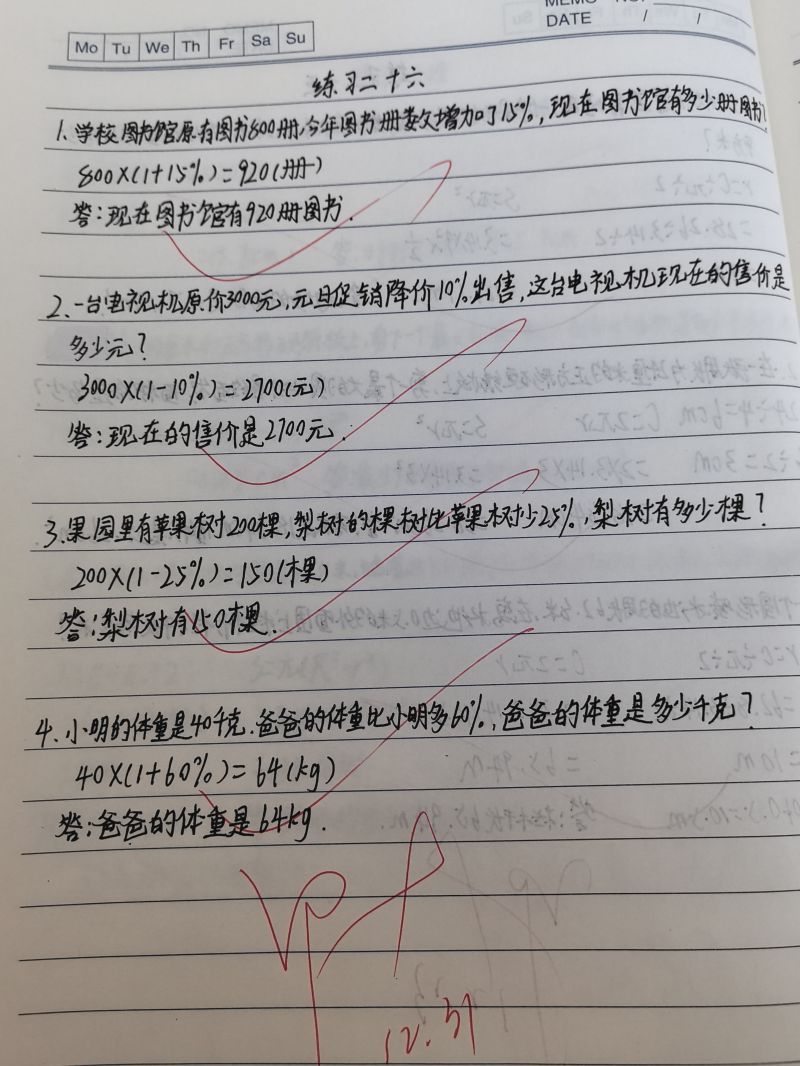 MEMO NO.
DATE / /
Mo Tu We Th Fr Sa Su
练习二十六
1. 学校图书馆原有图书800册,今年图书册数增加了15%,现在图书馆有多少册图书?
800×(1+15%)=920(册)
答:现在图书馆有920册图书.
2. 一台电视机原价3000元,元旦促销降价10%出售,这台电视机现在的售价是
多少元?
3000×(1-10%)=2700(元)
答:现在的售价是2700元.
3. 果园里有苹果树200棵,梨树的棵树比苹果树少25%,梨树有多少棵?
200×(1-25%)=150(棵)
答:梨树有150棵.
4. 小明的体重是40千克.爸爸的体重比小明多60%,爸爸的体重是多少千克?
40×(1+60%)=64(kg)
答:爸爸的体重是64kg.
12.31